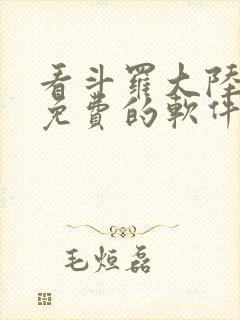 看斗羅大陸
免費的軟件
毛烜磊